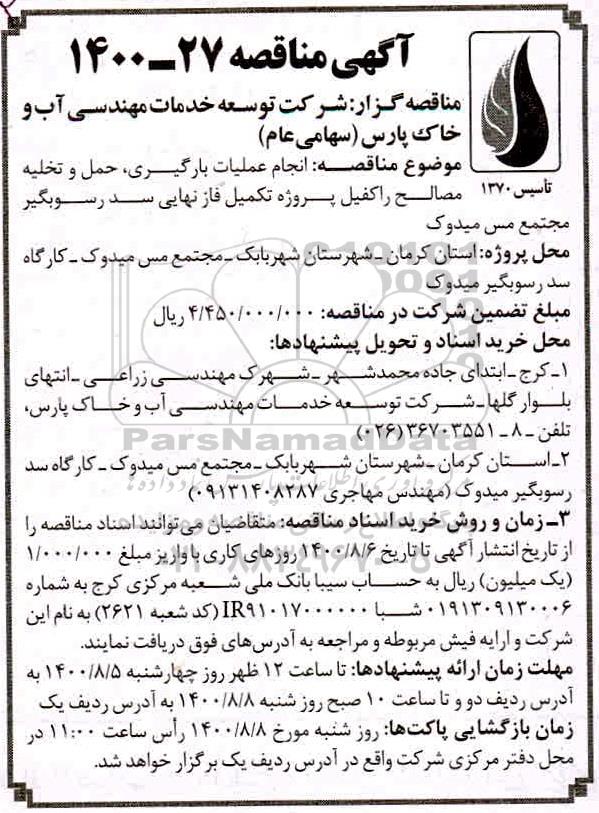 آگهی مناقصه ۲۷ـ۱۴۰۰
مناقصه گزار: شرکت توسعه خدمات مهندسی آب و
خاک پارس (سهامی عام)
تاسیس ۱۳۷۰
موضوع مناقصه: انجام عملیات بارگیری، حمل و تخلیه
مصالح راکفیل پروژه تکمیل فاز نهایی سد رسوبگیر
مجتمع مس میدوک
محل پروژه: استان کرمان ـ شهرستان شهربابک ـ مجتمع مس میدوک ـ کارگاه
سد رسوبگیر میدوک
مبلغ تضمین شرکت در مناقصه: ۴/۴۵۰/۰۰۰/۰۰۰ ریال
محل خرید اسناد و تحویل پیشنهادها:
۱ـ کرج ـ ابتدای جاده محمدشهر ـ شهرک مهندسی زراعی ـ انتهای
بلوار گلها ـ شرکت توسعه خدمات مهندسی آب و خاک پارس،
تلفن ـ ۸ ـ ۳۶۷۰۳۵۵۱ (۰۲۶)
ParsNamadData
۲ـ استان کرمان ـ شهرستان شهربابک ـ مجتمع مس میدوک ـ کارگاه سد
رسوبگیر میدوک (مهندس مهاجری ۰۹۱۳۱۴۰۸۲۸۷)
۳ـ زمان و روش خرید اسناد مناقصه: متقاضیان می‌توانند اسناد مناقصه را
از تاریخ انتشار آگهی تا تاریخ ۱۴۰۰/۸/۶ روزهای کاری با واریز مبلغ ۱/۰۰۰/۰۰۰
(یک میلیون) ریال به حساب سیبا بانک ملی شعبه مرکزی کرج به شماره
۰۱۹۱۳۰۹۱۳۰۰۰۶ شبا IR۹۱۰۱۷۰۰۰۰۰۰۰ (کد شعبه ۲۶۲۱) به نام این
شرکت و ارایه فیش مربوطه و مراجعه به آدرس‌های فوق دریافت نمایند.
مهلت زمان ارائه پیشنهادها: تا ساعت ۱۲ ظهر روز چهارشنبه ۱۴۰۰/۸/۵ به
آدرس ردیف دو و تا ساعت ۱۰ صبح روز شنبه ۱۴۰۰/۸/۸ به آدرس ردیف یک
زمان بازگشایی پاکت‌ها: روز شنبه مورخ ۱۴۰۰/۸/۸ رأس ساعت ۱۱:۰۰ در
محل دفتر مرکزی شرکت واقع در آدرس ردیف یک برگزار خواهد شد.